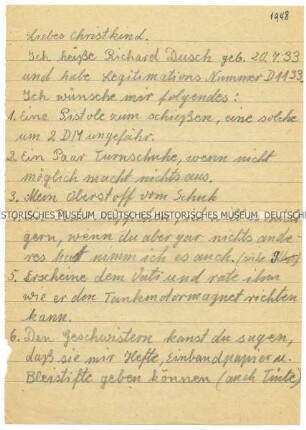 1948
Liebes Christkind.
Ich heiße Richard Dusch geb. 20.7.33
und habe Legitimations Nummer D1133.
Ich wünsche mir folgendes:
1. Eine Pistole zum schießen, eine solche
um 2 DM ungefähr.
2. Ein Paar Turnschuhe, wenn nicht
möglich macht nichts aus.
3. Mein Oberstoff vom Schuk
STORISCHES MUSEUM DEUTSCHES HISTORISCHES MUSEUM DEUTSCHES HISTORISCHES
gern, wenn du aber gar nichts ande-
res hast nimm ich es auch.
5. Erscheine dem Vati und rate ihm
wie er den Tankmotormagnet richten
kann.
6. Den Geschwistern kanst du sagen,
daß sie mir Hefte, Einbandpapier u.
Bleistifte geben können (auch Tinte)